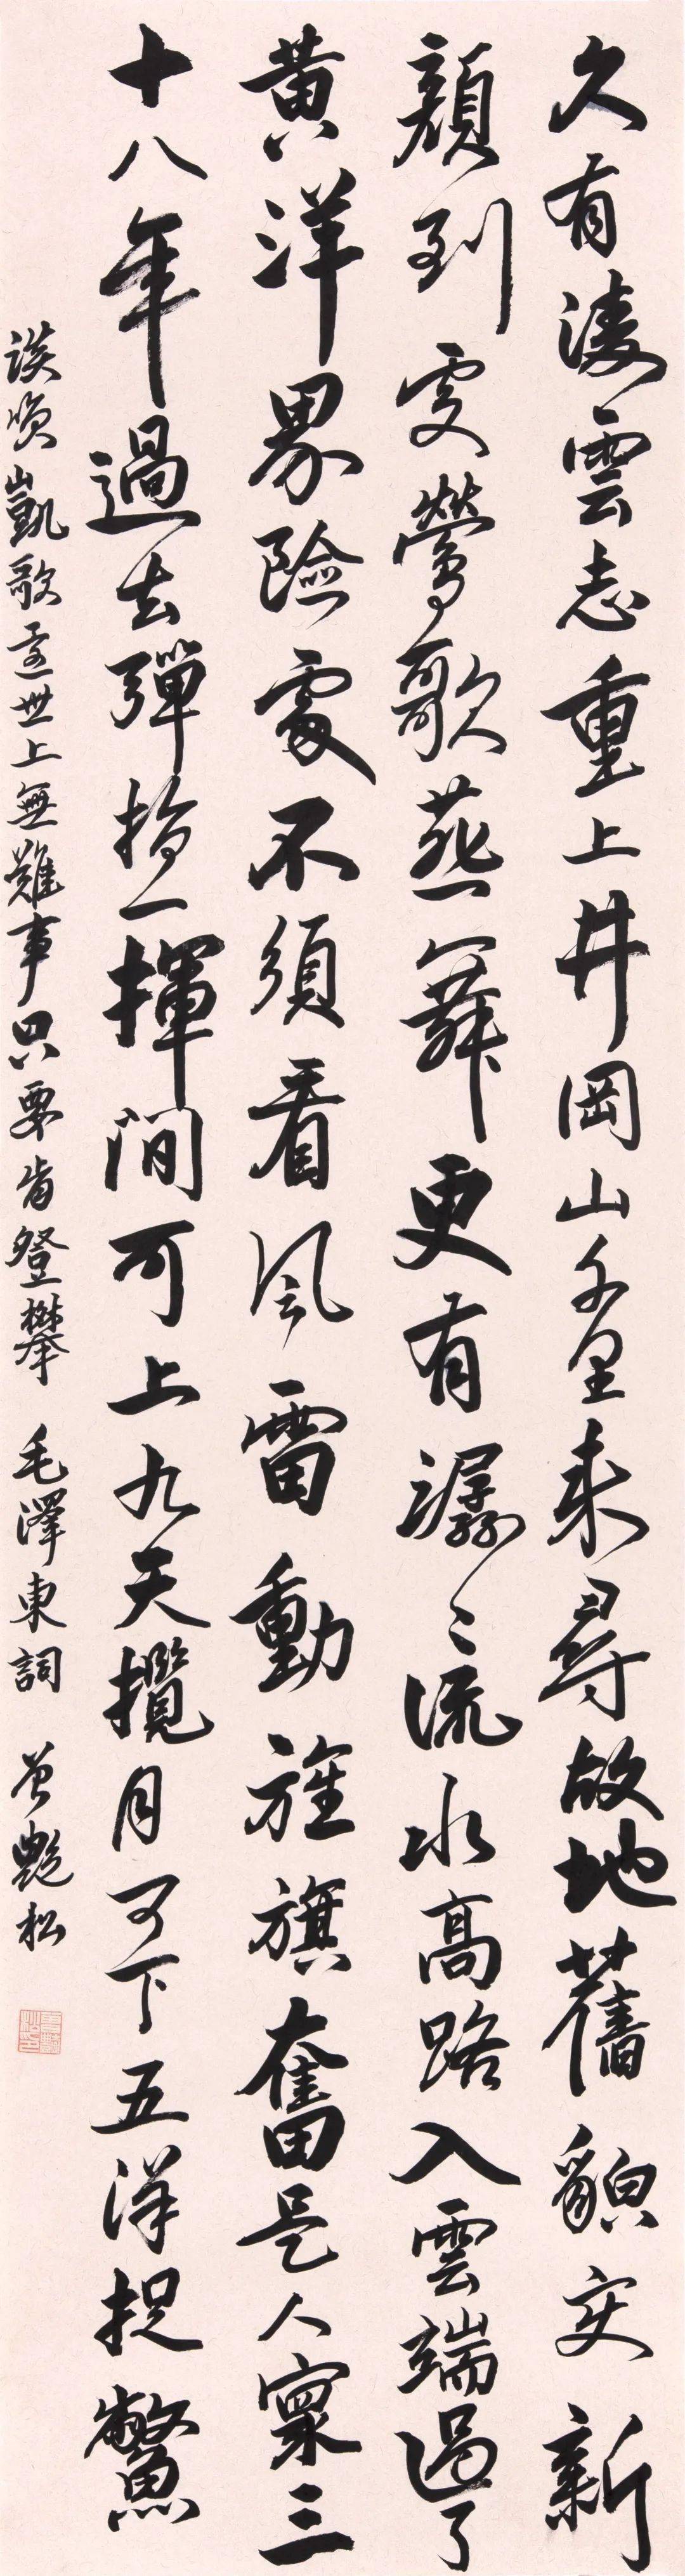 久有淩雲志重上井岡山千里来尋故地舊貌变新
顏到處鶯歌燕舞更有潺々流水高路入雲端過了
黄洋界險處不須看風雷動旌旗奮是人寰三
十八年過去彈指一揮間可上九天攬月可下五洋捉鱉
談笑凱歌還世上無難事只要肯登攀 毛澤東詞 曾艷松